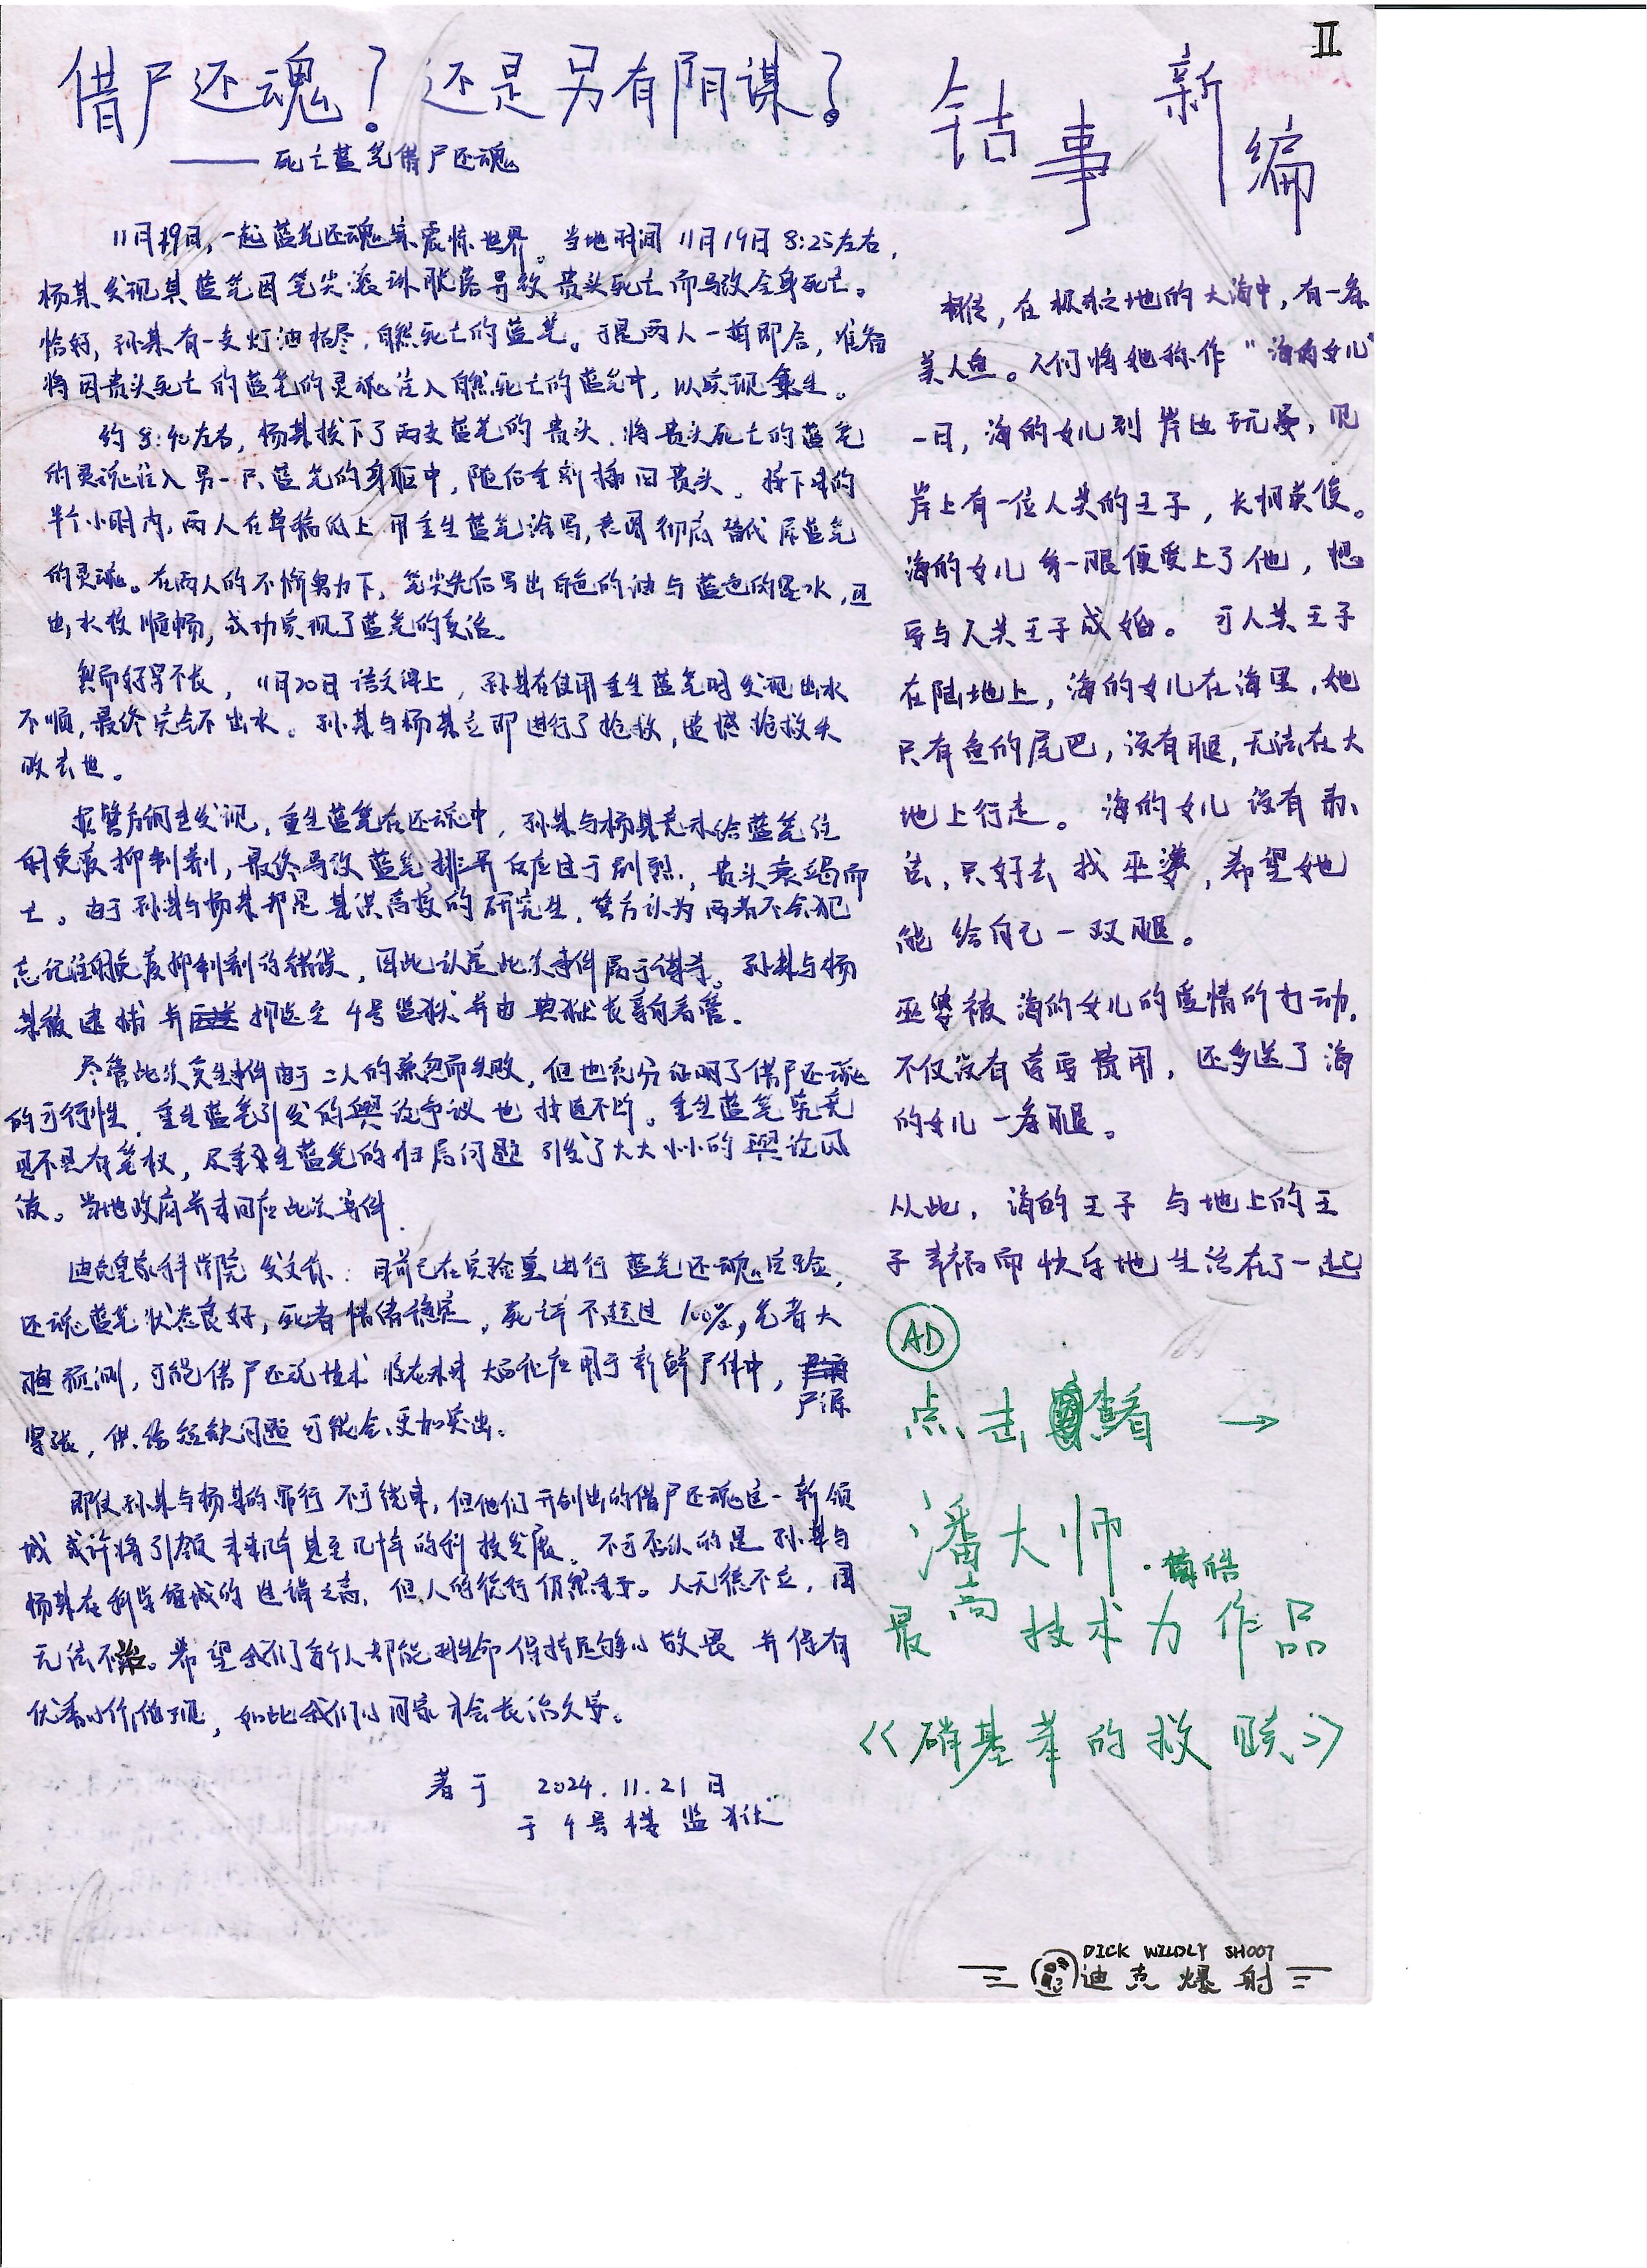 II
借尸还魂？还是另有阴谋？
——死亡蓝笔借尸还魂
11月19日，一起蓝笔还魂案震惊世界。当地时间11月19日8:25左右，
杨某发现其蓝笔因笔尖滚珠脱落导致贵头死亡而导致全身死亡。
恰好，孙某有一支灯油枯尽，自然死亡的蓝笔。于是两人一拍即合，准备
将因贵头死亡的蓝笔的灵魂注入自然死亡的蓝笔中，以实现重生。
约8:40左右，杨某拔下了两支蓝笔的贵头，将贵头死亡的蓝笔
的灵魂注入另一只蓝笔的身躯中，随后重新插回贵头。接下来的
半个小时内，两人在草稿纸上用重生蓝笔涂写，意图彻底替代原蓝笔
的灵魂。在两人的不懈努力下，笔尖先后写出白色的油与蓝色的墨水，且
出水较顺畅，成功实现了蓝笔的复活。
然而好景不长，11月20日语文课上，孙某在使用重生蓝笔时发现出水
不顺，最终完全不出水。孙某与杨某立即进行了抢救，遗憾抢救失
败去世。
据警方调查发现，重生蓝笔在还魂中，孙某与杨某未给蓝笔注
射免疫抑制剂，最终导致蓝笔排异反应过于剧烈，贵头衰竭而
亡。由于孙某与杨某都是某洪高校的研究生，警方认为两者不会犯
忘记注射免疫抑制剂的错误，因此认定此次事件属于谋杀。孙某与杨
某被逮捕并押送至4号监狱并由典狱长亲自看管。
尽管此次复生事件由于二人的疏忽而失败，但也充分证明了借尸还魂
的可行性，重生蓝笔引发的舆论争议也接连不断。重生蓝笔究竟
具不具有笔权，及重生蓝笔的归属问题引发了大大小小的舆论风
波。当地政府并未回应此次事件。
迪克皇家科学院发文称：目前已在实验室进行蓝笔还魂实验，
还魂蓝笔状态良好，死者情绪稳定，死亡率不超过100%，笔者大
胆预测，可能借尸还魂技术将在未来大规模应用于新鲜尸体中，尸源
紧张，供给短缺问题可能会更加突出。
即使孙某与杨某的罪行不可饶恕，但他们开创出的借尸还魂这一新领
域或许将引领未来几年甚至几十年的科技发展。不可否认的是孙某与
杨某在科学领域的造诣之高，但人的德行仍然重于。人无德不立，国
无法不治。希望我们每个人都能对生命保持足够的敬畏并保有
优秀的价值观，如此我们的国家才会长治久安。
著于 2024.11.21日
于4号楼监狱
钴事新编
相传，在极东之地的大海中，有一条
美人鱼。人们将她称作“海的女儿”
一日，海的女儿到岸边玩耍，见
岸上有一位人类的王子，长相英俊。
海的女儿第一眼便爱上了他，想
要与人类王子成婚。可人类王子
在陆地上，海的女儿在海里，她
只有鱼的尾巴，没有腿，无法在大
地上行走。海的女儿没有办
法，只好去找巫婆，希望她
能给自己一双腿。
巫婆被海的女儿的爱情所打动，
不仅没有索要费用，还多送了海
的女儿一条腿。
从此，海的王子与地上的王
子幸福而快乐地生活在了一起
AD
点击查看 →
潘大师·
最高技术力作品
《硝基苯的救赎》
DICK WILDLY SHOOT
迪克爆射